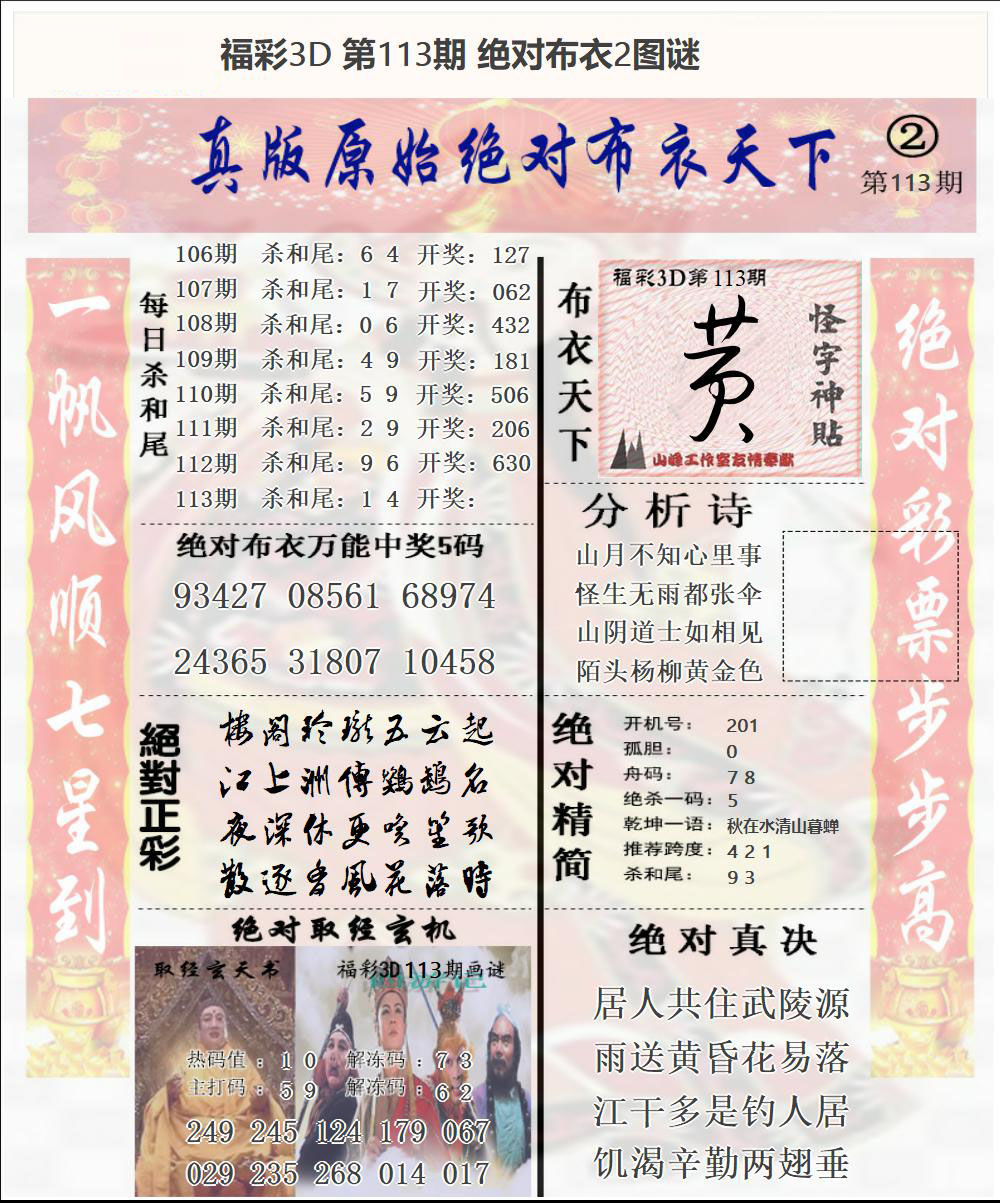 福彩3D 第113期 绝对布衣2图谜
真版原始绝对布衣天下
②
第113期
一帆风顺七星到
每日杀和尾
106期 杀和尾：6 4 开奖：127
107期 杀和尾：1 7 开奖：062
108期 杀和尾：0 6 开奖：432
109期 杀和尾：4 9 开奖：181
110期 杀和尾：5 9 开奖：506
111期 杀和尾：2 9 开奖：206
112期 杀和尾：9 6 开奖：630
113期 杀和尾：1 4 开奖：
绝对布衣万能中奖5码
93427 08561 68974
24365 31807 10458
絕對正彩
楼阁玲珑五云起
江上洲傳鹦鵡名
夜深休更唤笙歌
散逐香風花落時
绝对取经玄机
取经玄天书
福彩3D113期画谜
热码值：1 0 解冻码：7 3
主打码：5 9 解冻码：6 2
249 245 124 179 067
029 235 268 014 017
布衣天下
福彩3D第113期
黄
怪字神貼
山峰工作室友情奉献
分析诗
山月不知心里事
怪生无雨都张伞
山阴道士如相见
陌头杨柳黄金色
绝对精简
开机号：201
孤胆：0
舟码：7 8
绝杀一码：5
乾坤一语：秋在水清山暮蝉
推荐跨度：4 2 1
杀和尾：9 3
绝对真决
居人共住武陵源
雨送黄昏花易落
江干多是钓人居
饥渴辛勤两翅垂
绝对彩票步步高